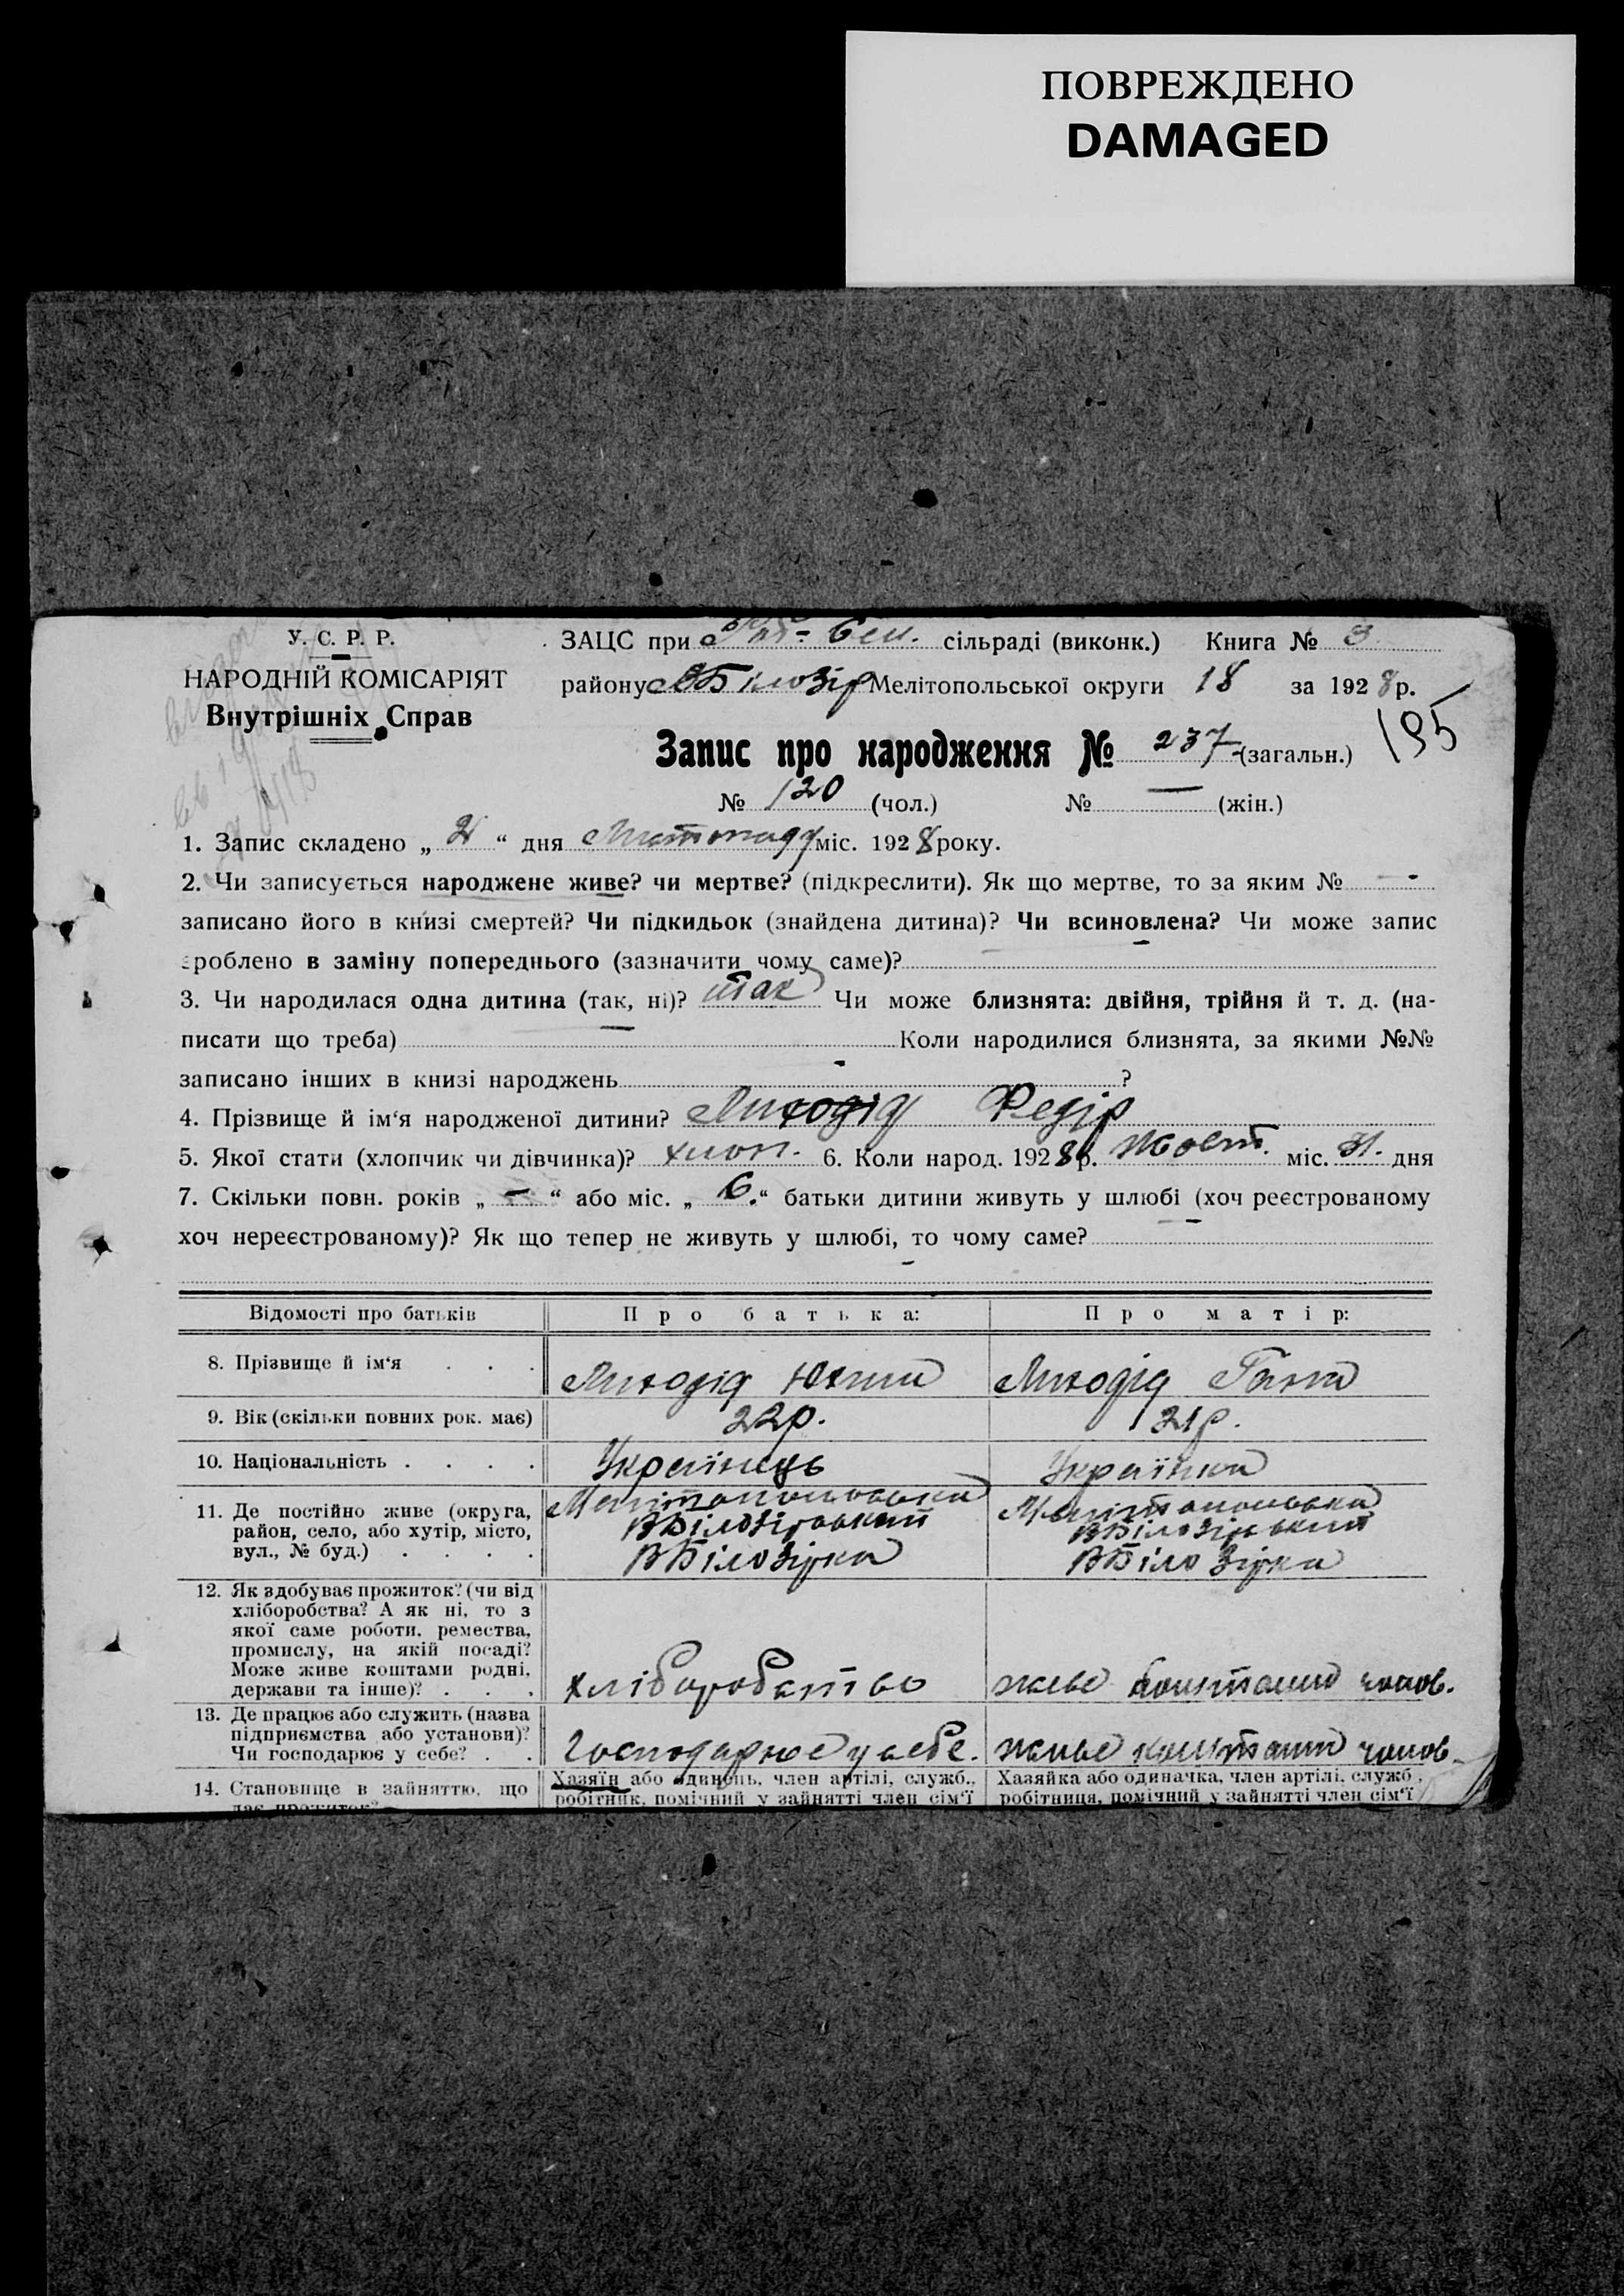 ПОВРЕЖДЕНО
DAMAGED
У. С. Р. Р.
НАРОДНІЙ КОМІСАРІЯТ
Внутрішніх Справ
ЗАЦС при сільраді (виконк.) Книга № 3
району ВБілозір Мелітопольської округи 18 за 1928 р.
195
Запис про народження № 237 (загальн.)
№ 120 (чол.) № — (жін.)
1. Запис складено „ “ дня Листопаду міс. 1928 року.
2. Чи записується народжене живе? чи мертве? (підкреслити). Як що мертве, то за яким № -
записано його в книзі смертей? Чи підкидьок (знайдена дитина)? Чи всиновлена? Чи може запис
зроблено в заміну попереднього (зазначити чому саме)?
3. Чи народилася одна дитина (так, ні)? так Чи може близнята: двійня, трійня й т. д. (на-
писати що треба) — Коли народилися близнята, за якими №№
записано інших в книзі народжень - ?
4. Прізвище й ім‘я народженої дитини? Лиходід Федір
5. Якої стати (хлопчик чи дівчинка)? хлоп. 6. Коли народ. 1928 р. Жовт. міс. дня
7. Скільки повн. років „ — “ або міс. „ 6. “ батьки дитини живуть у шлюбі (хоч реєстрованому
хоч нереєстрованому)? Як що тепер не живуть у шлюбі, то чому саме? -
Відомості про батьків Про батька: Про матір:
8. Прізвище й ім‘я . . . Лиходід Юхим Лиходід Ганна
9. Вік (скільки повних рок. має) 22р. 21р.
10. Національність . . . . Українець Українка
11. Де постійно живе (округа, Мелітопольська Мелітопольська
район, село, або хутір, місто, ВБілозірський ВБілозірський
вул., № буд.) . . . . ВБілозірка ВБілозірка
12. Як здобуває прожиток? (чи від
хліборобства? А як ні, то з
якої саме роботи, ремества,
промислу, на якій посаді?
Може живе коштами родні,
держави та інше)? . . . хліборобство живе коштами чолов.
13. Де працює або служить (назва
підприємства або установи)?
Чи господарює у себе? . . Господарює у себе. живе коштами чолов.
14. Становище в зайняттю, що Хазяїн або одинець, член артілі, служб., Хазяйка або одиначка, член артілі, служб.,
дає прожиток? робітник, помічний у зайнятті член сім‘ї робітниця, помічний у зайнятті член сім‘ї